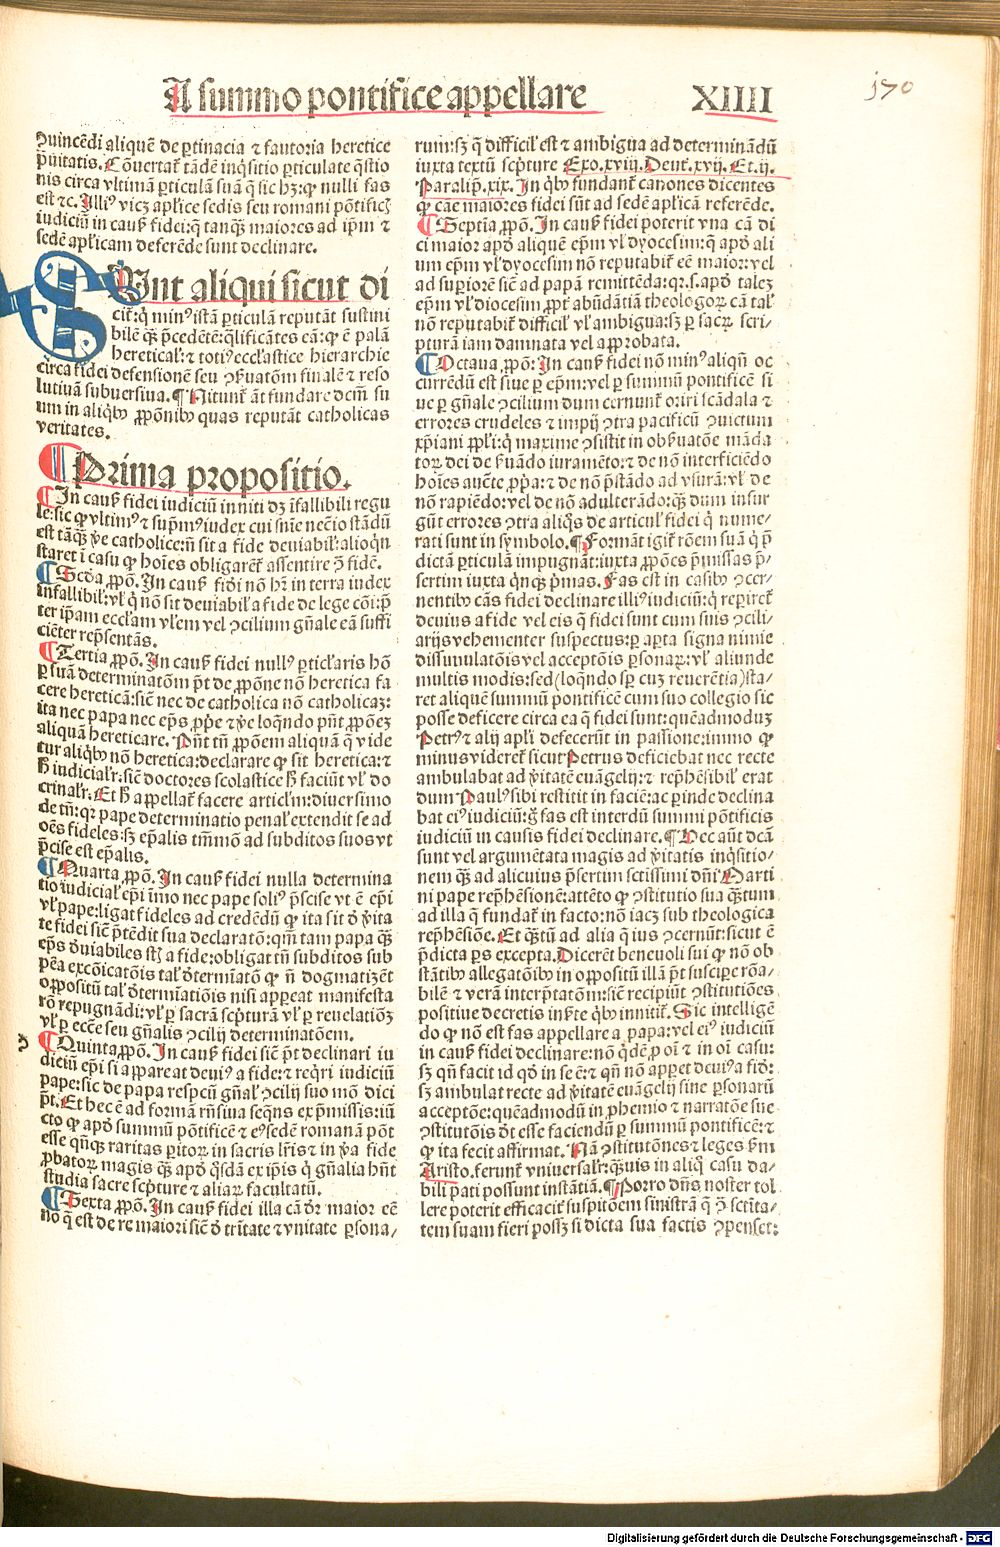 A summo pontifice appellare XIIII
170
ꝯuincēdi aliquē de ꝑtinacia ⁊ fautoria heretice
p̄uitatis. Cōuertat᷑ tādē inq̇sitio ꝑticulate q̄stio
nis circa vltimā ꝑticulā suā q̄ sic hꝫ: ꝙ nulli fas
est ⁊c. Illiꝰ vicꝫ apl̓ice sedis seu romani pōtificꝭ
iudiciū in causꝭ fidei: q̇ tanqꝫ maiores ad ip̄m ⁊
sedē apl̓icam deferēde sunt declinare.
SUnt aliqui sicut di
cit᷑: q̇ minꝰ istā ꝑticulā reputāt sustini
bilē qꝫ p̄cedētē: q̄lificātes eā: ꝙ ē palā
hereticalꝭ: ⁊ totiꝰ eccl̓astice hierarchie
circa fidei defensionē seu ꝯẜuatōm finalē ⁊ reso
lutiuā subuersiua. ¶ Nitunt᷑ āt fundare dcm̄ su
um in aliq̇bꝰ ꝓpōnibꝰ quas reputāt catholicas
veritates.
¶ Prima propositio.
¶ In causꝭ fidei iudiciū inniti dꝫ īfallibili regu
le: sic ꝙ vltimꝰ ⁊ sup̄mꝰ iudex cui sn̄ie necīo stādū
est tāqꝫ ꝟe catholice: n̄ sit a fide deuiabilꝭ: alioq̇n
staret ī casu ꝙ hoīes obligarēt᷑ assentire ꝯ̄ fidē.
¶ Scḋa ꝓpō. In causꝭ fidī nō hꝛ̄ in terra iudex
infallibilꝭ: vl̓ q̇ nō sit deuiabilꝭ a fide de lege cōi: p̄
ter ip̄am eccl̓am vl̓em vel ꝯcilium gn̄ale eā suffi
ciēter rep̄sentās.
¶ Tertia ꝓpō. In causꝭ fidei nullꝰ ꝑticl̓aris hō
ꝑ suā determinatōm p̄t de ꝓpōne nō heretica fa
cere hereticā: sic̄ nec de catholica nō catholicaꝫ:
ita nec papa nec ep̄s ꝓpe ⁊ ꝟe loq̄ndo pn̄t ꝓpōeꝫ
aliquā hereticare. Pn̄t tn̄ ꝓpōem aliquā q̄ vide
tur aliq̇bꝰ nō heretica: declarare ꝙ sit heretica: ⁊
ħ iudicial̓r: sic̄ doctores scolastice ħ faciūt vl̓ do
crinal̓r. Et ħ appellat᷑ facere articl̓m: diuersimo
de tn̄: qꝛ pape determinatio penal̓ extendit se ad
oēs fideles: sꝫ ep̄alis tm̄mō ad subditos suos vt
p̄cise est ep̄alis.
¶ Quarta ꝓpō. In causꝭ fidei nulla determina
tio iudicial̓ ep̄i īmo nec pape soliꝰ p̄scise vt ē ep̄i
vl̓ pape: ligat fideles ad credēdū ꝙ ita sit ḋ ꝟita
te fidei sic̄ p̄tēdit sua declaratō: qm̄ tam papa qꝫ
ep̄s ḋuiabiles sꝭt a fide: obligat tn̄ subditos sub
pēa excōicatōis tal̓ ḋterminatō ꝙ n̄ dogmatiꝫēt
oppositū tal̓ ḋterminatiōis nisi appeat manifesta
rō repugnādi: vl̓ ꝑ sacrā scp̄turā vl̓ ꝑ reuelatiōꝫ
vl̓ ꝑ ecc̄e seu gn̄alis ꝯcilij determinatōem.
¶ Quinta ꝓpō. In causꝭ fidei sic̄ p̄t declinari iu
diciū ep̄i si appareat deuiꝰ a fide: ⁊ req̇ri iudiciū
pape: sic de papa respcū gn̄al̓ ꝯcilij suo mō dici
p̄t. Et hec ē ad formā rn̄siua seq̄ns ex p̄missis: iū
cto ꝙ apḋ summū pōtificē ⁊ eꝰ sedē romanā pōt
esse qn̄qꝫ raritas ꝑitoꝝ in sacris lr̄is ⁊ in ꝟa fide
ꝓbatoꝝ magis qꝫ apḋ q̇sdā ex ip̄is q̇ gn̄alia hn̄t
studia sacre scp̄ture ⁊ aliaꝝ facultatū.
¶ Sexta ꝓpō. In causꝭ fidei illa cā ḋꝛ maior eē
no q̄ est de re maiori sic̄ ḋ tr̄itate ⁊ vnitate ꝑsona⸗
rum: sꝫ q̄ difficil̓ est ⁊ ambigua ad determinādū
iuxta textū scp̄ture Exo. xviij. Deut᷑. xvij. Et. ij.
Paralip̄. xix. In q̇bꝰ fundant᷑ canones dicentes
ꝙ cāe maiores fidei sūt ad sedē apl̓icā referēde.
¶ Septīa ꝓpō. In causꝭ fidei poterit vna cā di
ci maior apḋ aliquē ep̄m vl̓ dyocesim: q̄ apḋ ali
um ep̄m vl̓ dyocesim nō reputabit᷑ eē maior: vel
ad supiorē sic̄ ad papā remittēda: qꝛ. s. apḋ taleꝫ
ep̄m vl̓ diocesim ꝓpt᷑ abūdātiā theologoꝝ cā tal̓
nō reputabit᷑ difficil̓ vl̓ ambigua: sꝫ ꝑ sacrꝭ scri⸗
pturā iam damnata vel approbata.
¶ Octaua ꝓpō: In causꝭ fidei nō minꝰ aliqn̄ oc
currēdū est siue ꝑ ep̄m: vel ꝑ summū pontificē si
ue ꝑ gn̄ale ꝯcilium dum cernunt᷑ oriri scādala ⁊
errores crudeles ⁊ impij ꝯtra pacificū ꝯuictum
xp̄iani ppl̓i: q̇ maxime ꝯsistit in obẜuatōe māda
toꝝ dei de ẜuādo iuramēto: ⁊ de nō interficiēdo
hoīes aucte ꝓpa: ⁊ de nō p̄stādo ad vsurā: vl̓ de
nō rapiēdo: vel de nō adulterādo: qꝫ dum insur
gūt errores ꝯtra aliq̇s de articul̓ fidei q̇ nume⸗
rati sunt in symbolo. ¶ Formāt igit᷑ rōem suā q̇ p̄
dictā ꝑticulā impugnāt: iuxta ꝓpōes p̄missas p̄⸗
sertim iuxta q̇nqꝫ p̄mas. Fas est in casibꝰ ꝯcer⸗
nentibꝰ cās fidei declinare illiꝰ iudiciū: q̇ repiret᷑
deuius a fide vel eis q̄ fidei sunt cum suis ꝯcili⸗
arijs vehementer suspectus: ꝑ apta signa nimie
dissimulatōis vel acceptōis ꝑsonaꝝ: vl̓ aliunde
multis modis: sed (loq̄ndo sp̄ cuꝫ reuerētia) sta⸗
ret aliquē summū pontificē cum suo collegio sic
posse deficere circa ea q̄ fidei sunt: quēadmoduꝫ
Petrꝰ ⁊ alij apl̓i defecerūt in passione: immo ꝙ
minus videret᷑ sicut Petrus deficiebat nec recte
ambulabat ad ꝟitatē euāgelij: ⁊ rep̄hēsibil̓ erat
dum Paulꝰ sibi restitit in faciē: ac ꝑinde declina
bat eiꝰ iudiciū: g̊ fas est interdū summi pōtificis
iudiciū in causis fidei declinare. ¶ Hec aūt dcā
sunt vel argumētata magis ad ꝟitatis inq̇sitio⸗
nem qꝫ ad alicuius p̄sertim sctīssimi dn̄i Marti
ni pape rep̄hēsionē: attēto ꝙ ꝯstitutio sua q̄ꝫtum
ad illa q̄ fundat᷑ in facto: nō iacꝫ sub theologica
rep̄hēsiōe. Et q̄ꝫtū ad alia q̄ ius ꝯcernūt: sicut ē
p̄dicta ꝑs excepta. Dicerēt beneuoli sui ꝙ nō ob
stātibꝰ allegatōibꝰ in oppositū illā pn̄t suscipe rōa⸗
bilē ⁊ verā interp̄tatōm: sic̄ recipiūt ꝯstitutiōes
positiue decretis inẜte q̇bꝰ innitit᷑. Sic intelligē
do ꝙ nō est fas appellare a papa: vel eiꝰ iudiciū
in causꝭ fidei declinare: nō q̇dē ꝓ oī ⁊ in oī casu:
sꝫ qn̄ facit id qḋ in se ē: ⁊ qn̄ nō apparet deuiꝰ a fiḋ:
sꝫ ambulat recte ad ꝟitatē euāgelij sine ꝑsonarū
acceptōe: quēadmodū in ꝓhemio ⁊ narratōe sue
ꝯstitutōis ḋt esse faciendū ꝑ summū pontificē: ⁊
ꝙ ita fecit affirmat. Nā ꝯstitutōnes ⁊ leges ẜm
Aristo. ferunt᷑ vniuersal̓r: qꝫuis in aliq̇ casu da⸗
bili pati possunt instātiā. ¶ Porro dn̄s noster tol
lere poterit efficacit᷑ suspitōem sinistrā q̄ ꝯ̄ sctīta⸗
tem suam fieri possꝫ si dicta sua factis ꝯpenset:
Digitalisierung gefördert durch die Deutsche Forschungsgemeinschaft - DFG